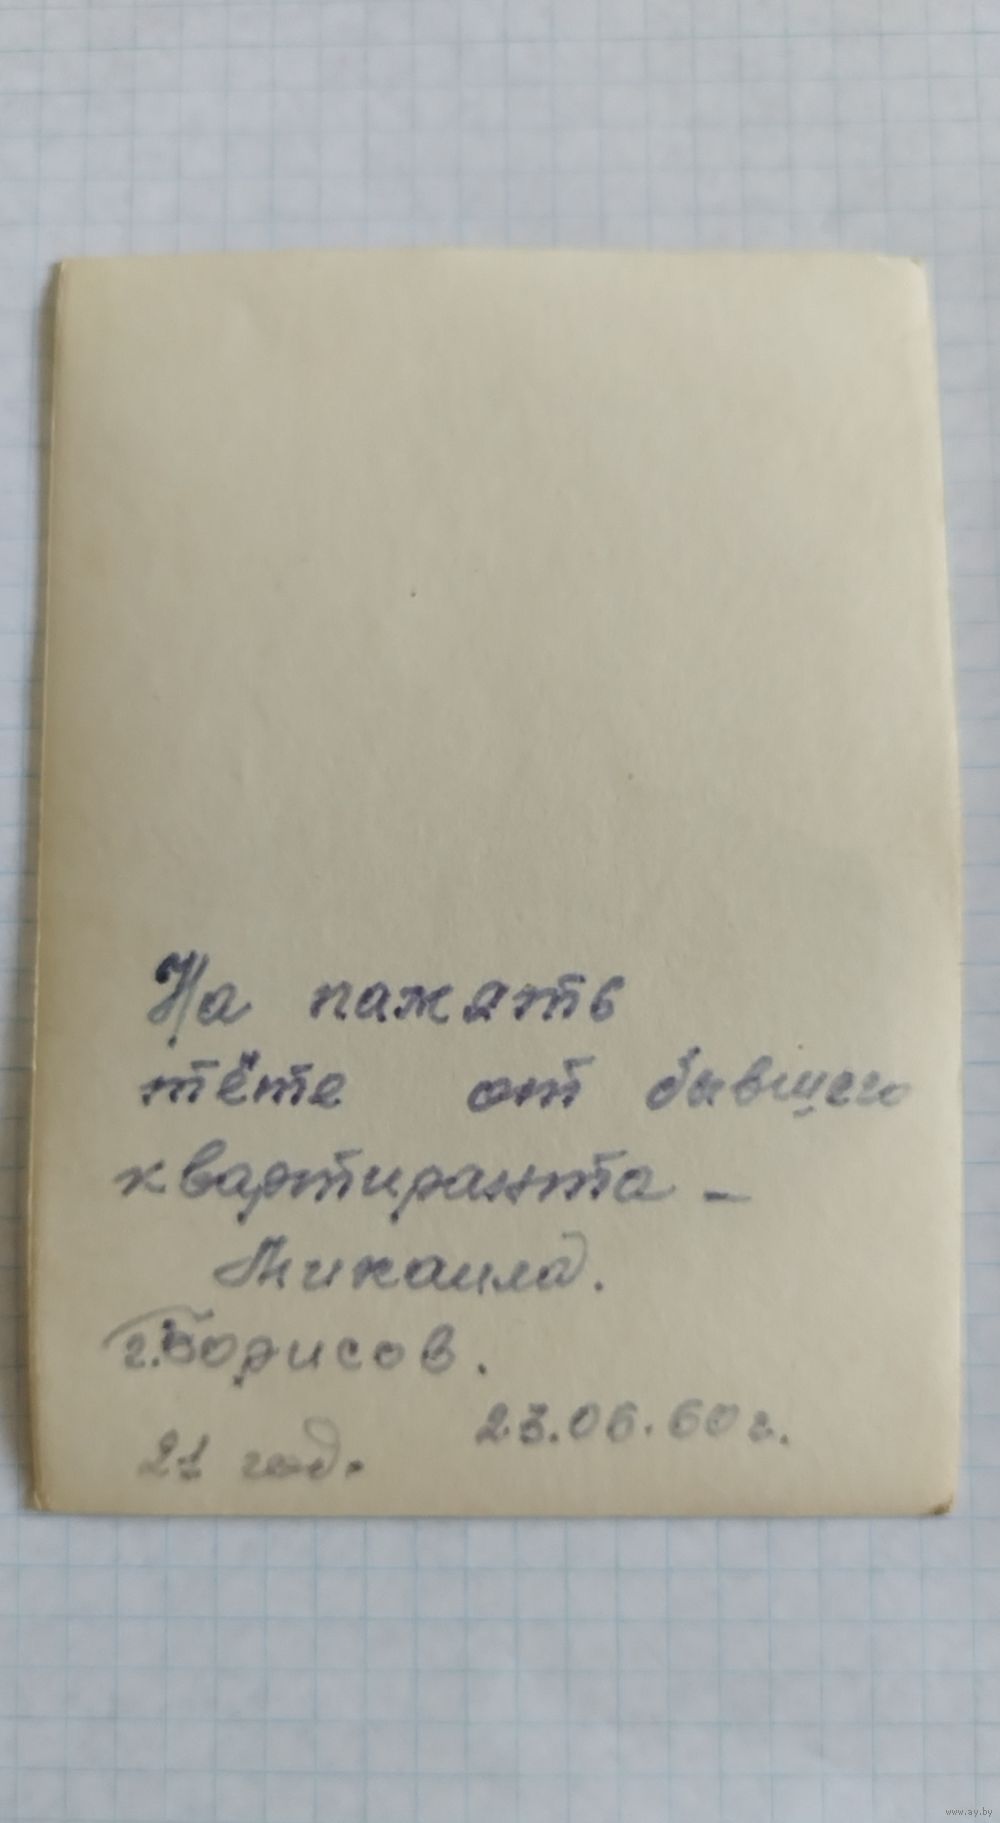 На память
тёте от бывшего
квартиранта –
Михаила.
г. Борисов.
23.06.60 г.
21 год.
www.ay.by